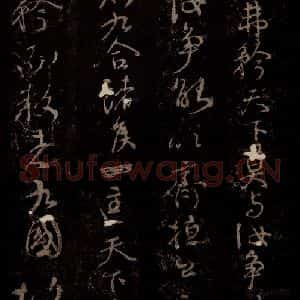 弗矜天下莫与汝争
汝争能以齊桓公
九合諸侯一匡天下
矜而叛者九國故
Shufawang.CN